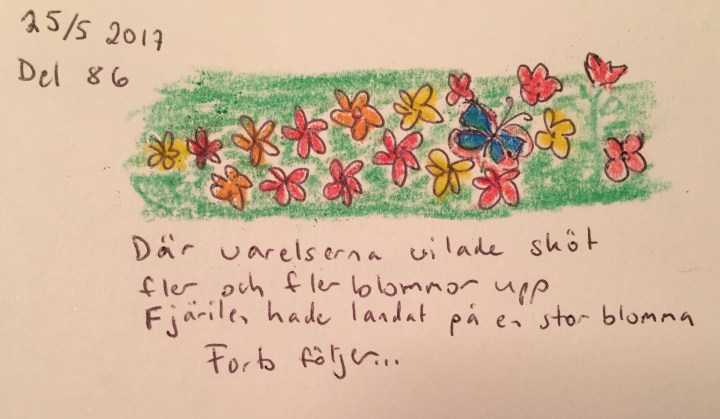 25/5 2017
Del 86
Där varelserna vilade sköt
fler och fler blommor upp
Fjärilen hade landat på en stor blomma
Forts följer...